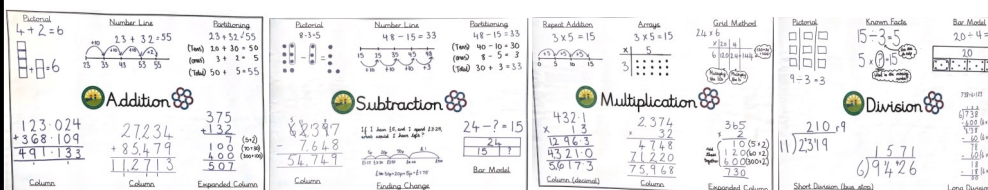 Pictorial
4 + 2 = 6
Number Line
23 + 32 = 55
+10 +10 +10 +2
23 33 43 53 55
Partitioning
23+32=55
(Tens) 20 + 30 = 50
(ones) 3 + 2 = 5
(Total) 50 + 5 = 55
+ = 6
Addition
123.024
+368.109
491.133
Column
27,234
+85,479
112,713
Column
375
+132
7 (5+2)
100 (70+30)
400 (300+100)
507
Expanded Column
Pictorial
8-3=5
Number Line
48 - 15 = 33
15 25 35 45 48
+10 +10 +10 +3
Partitioning
48 - 15 = 33
(Tens) 40 - 10 = 30
(ones) 8 - 5 = 3
(Total) 30 + 3 = 33
Subtraction
62,397
- 7,648
54,749
Column
If I have £5, and I spend £3.29,
what would I have left?
Finding Change
24 - ? = 15
24
15 ?
Bar Model
Repeat Addition
3 x 5 = 15
+5 +5 +5
0 5 10 15
Arrays
3 x 5 = 15
x 5
3
Grid Method
24 x 6
x 20 4
6 120 24 =144
Multiplication
432.1
x 13
1296.3
4321.0
5,617.3
Column (decimal)
2,374
x 32
4748
71220
75,968
Column
365
x 2
10 (5x2)
120 (60x2)
600 (300x2)
730
Expanded Column
Pictorial
9-3=3
Known Facts
15÷3=5
5 x ? = 15
Bar Model
20÷4=
20
Division
210 r9
11)2319
Short Division (bus stop)
1571
6)9426
738÷6=123
6)738
Long Division